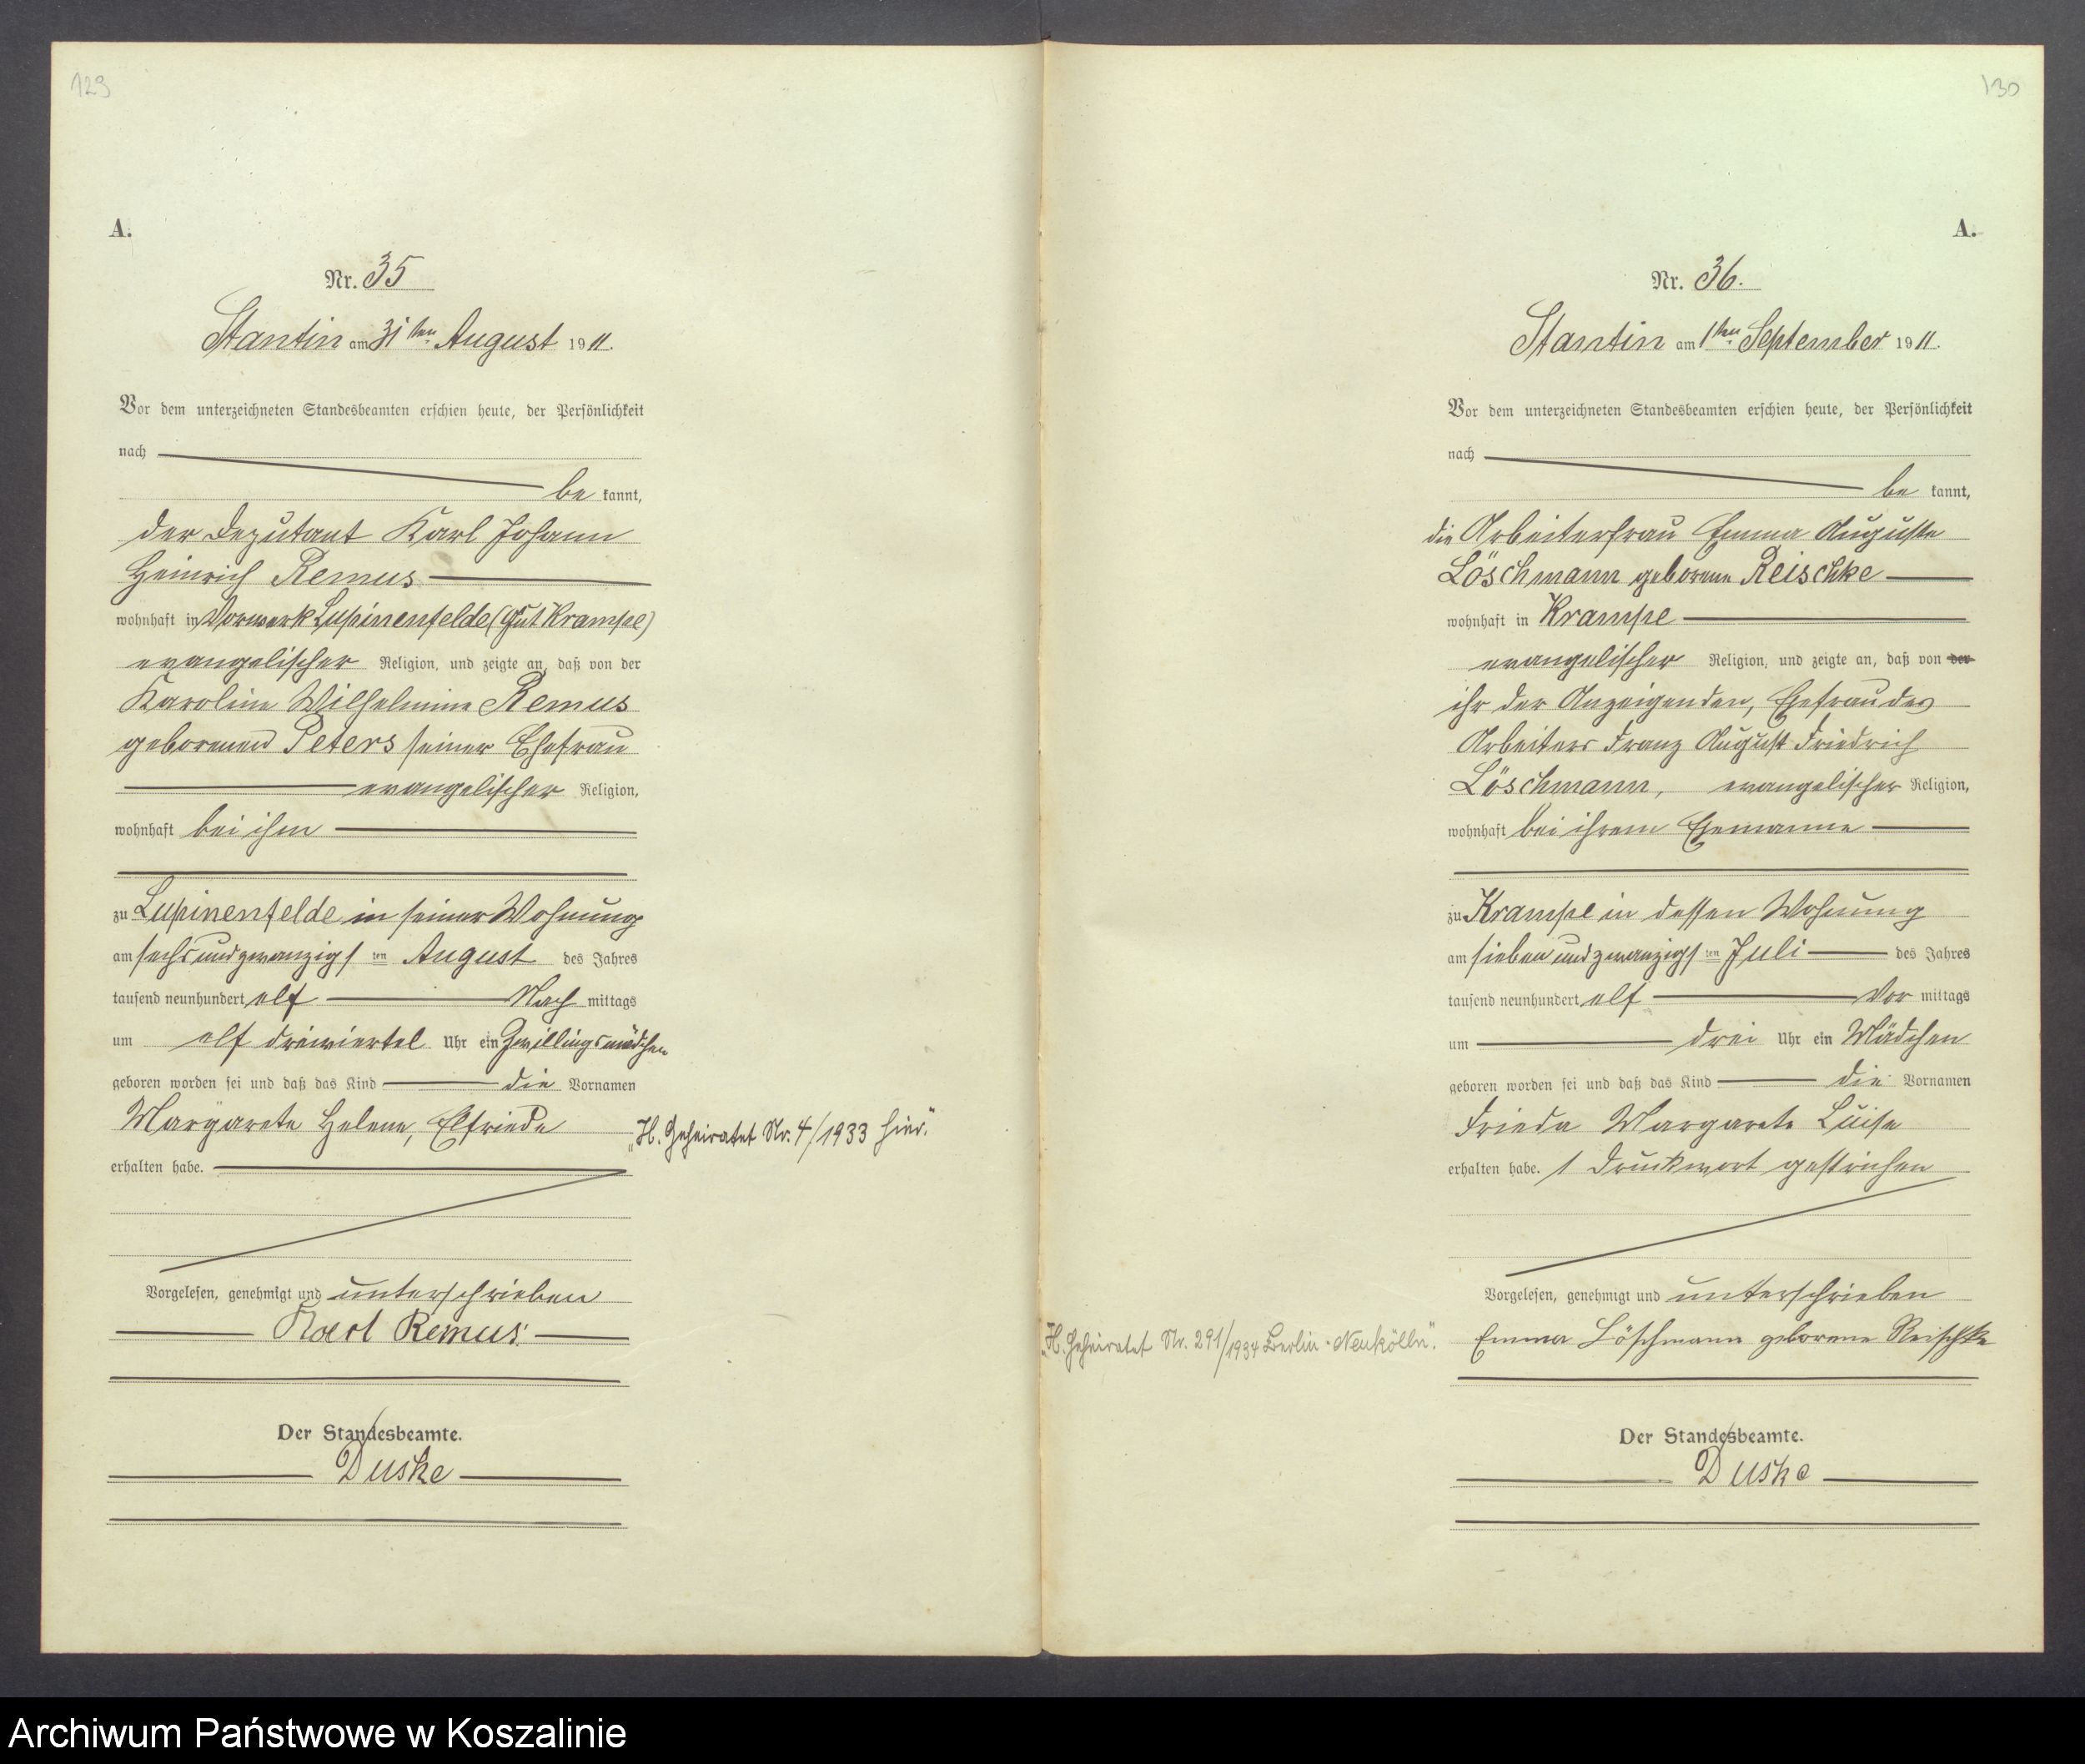 129
A.
Nr. 35
Stantin am 31ten August 1911.
Vor dem unterzeichneten Standesbeamten erschien heute, der Persönlichkeit
nach
be kannt,
der Deputant Karl Johann
Heinrich Remus
wohnhaft in Vorwerk Lupinenfelde (Gut Krampe)
evangelischer Religion, und zeigte an, daß von der
Karoline Wilhelmine Remus
geborenen Peters seiner Ehefrau
evangelischer Religion,
wohnhaft bei ihm
zu Lupinenfelde in seiner Wohnung
am sechsundzwanzigsten August des Jahres
tausend neunhundert elf Nach mittags
um elf dreiviertel Uhr ein Zwillingsmädchen
geboren worden sei und daß das Kind die Vornamen
Margarete Helene, Elfriede
„H. Geheiratet Nr. 4/1933 hier.“
erhalten habe.
Vorgelesen, genehmigt und unterschrieben
Karl Remus
Der Standesbeamte.
Duske
130
A.
Nr. 36.
Stantin am 1ten September 1911.
Vor dem unterzeichneten Standesbeamten erschien heute, der Persönlichkeit
nach
be kannt,
die Arbeiterfrau Emma Auguste
Löschmann geborene Reischke
wohnhaft in Krampe
evangelischer Religion, und zeigte an, daß von der
ihr der Anzeigenden, Ehefrau des
Arbeiters Franz August Friedrich
Löschmann, evangelischer Religion,
wohnhaft bei ihrem Ehemanne
zu Krampe in dessen Wohnung
am siebenundzwanzigsten Juli des Jahres
tausend neunhundert elf Vor mittags
um drei Uhr ein Mädchen
geboren worden sei und daß das Kind die Vornamen
Frieda Margarete Luise
erhalten habe. 1 Druckwort gestrichen
Vorgelesen, genehmigt und unterschrieben
„H. Geheiratet Nr. 291/1934 Berlin-Neukölln“.
Emma Löschmann geborene Reischke
Der Standesbeamte.
Duske
Archiwum Państwowe w Koszalinie